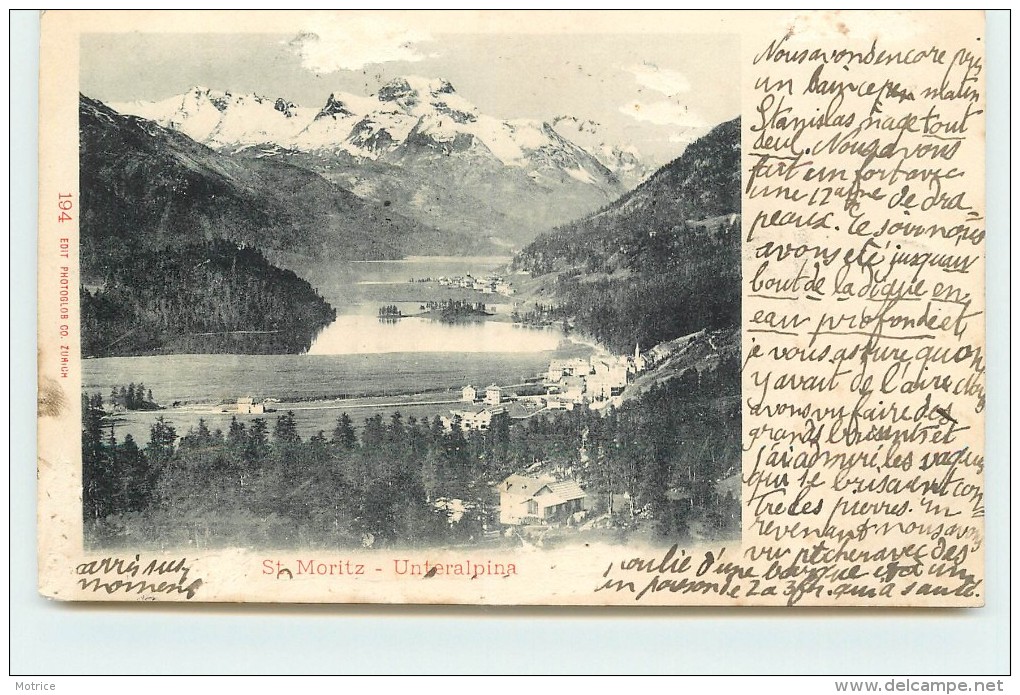 Nous avons encore pris
un bain ce matin
Stanislas nage tout
seul. Nous avons
fait un fort avec
une 12aine de dra
peaux. Ce soir nous
avons été jusqu'au
bout de la digue en
eau profonde et
je vous assure qu'on
y avait de l'air. Nous
avons vu faire des
grands brisants et
j'ai admiré les vagues
qui se brisaient con
tre les pierres. En
revenant nous avons
vu pêcher avec des
poulie d'une barque et a un
un poisson de 2 a 3fr. qui a sauté.
194 EDIT PHOTOGLOB CO. ZURICH
St. Moritz - Unteralpina
Motrice
www.delcampe.net